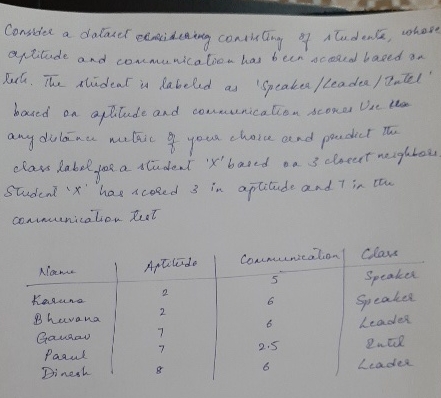 Consider a dataset considering consisting of students, whose
aptitude and communication has been scored based on
tests. The student is labeled as 'Speaker/Leader/Intel'
based on aptitude and communication scores Use
any distance metric of your choice and predict the
class label for a student 'X' based on 3 closest neighbors.
Student 'X' has scored 3 in aptitude and 7 in the
communication test
Name Aptitude Communication Class
Karuna 2 5 Speaker
Bhuvana 2 6 Speaker
Gaurav 7 6 Leader
Parul 7 2.5 Intel
Dinesh 8 6 Leader